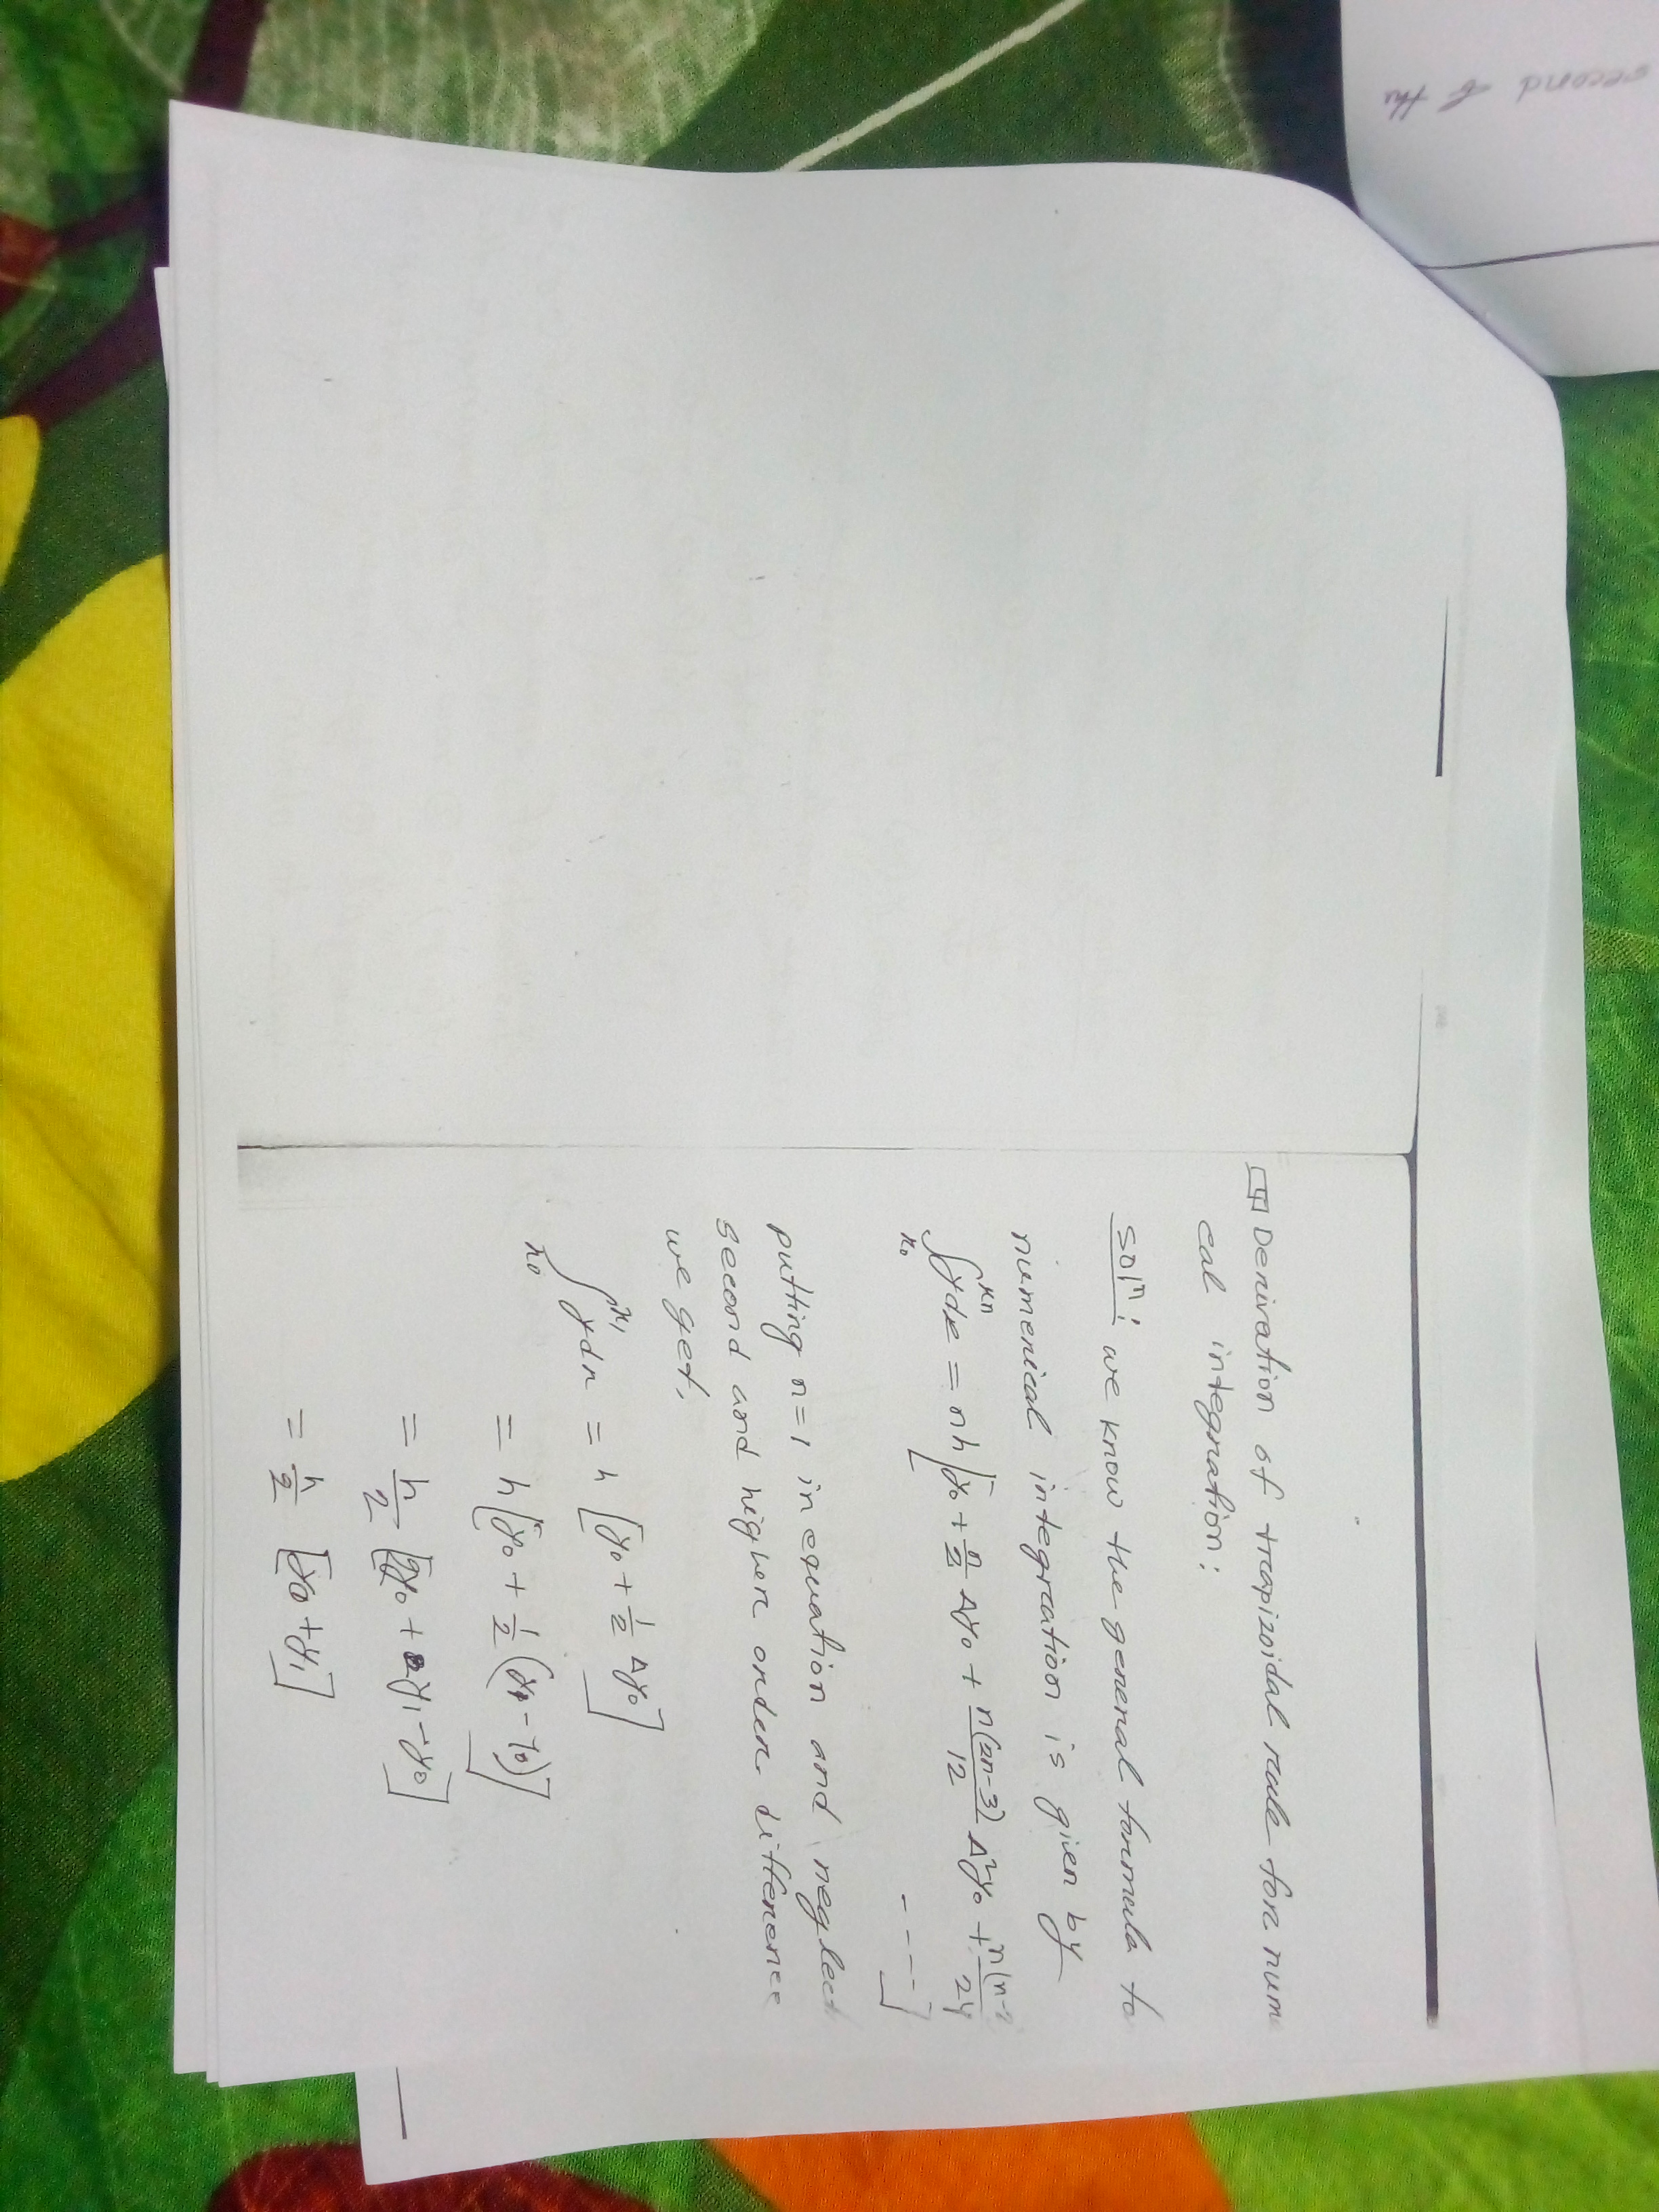 second & thi
Derivation of trapizoidal rule for num
cal integration:
Solⁿ: we know the general formula to
numerical integration is given by
∫_{x₀}^{xn} y dx = nh [y₀ + n/2 Δy₀ + n(2n-3)/12 Δ²y₀ + n(n-2 / 24
----]
putting n=1 in equation and neglect
second and higher order difference
we get,
∫_{x₀}^{x₁} y dx = h [y₀ + 1/2 Δy₀]
= h [y₀ + 1/2 (y₁ - y₀)]
= h/2 [2y₀ + y₁ - y₀]
= h/2 [y₀ + y₁]